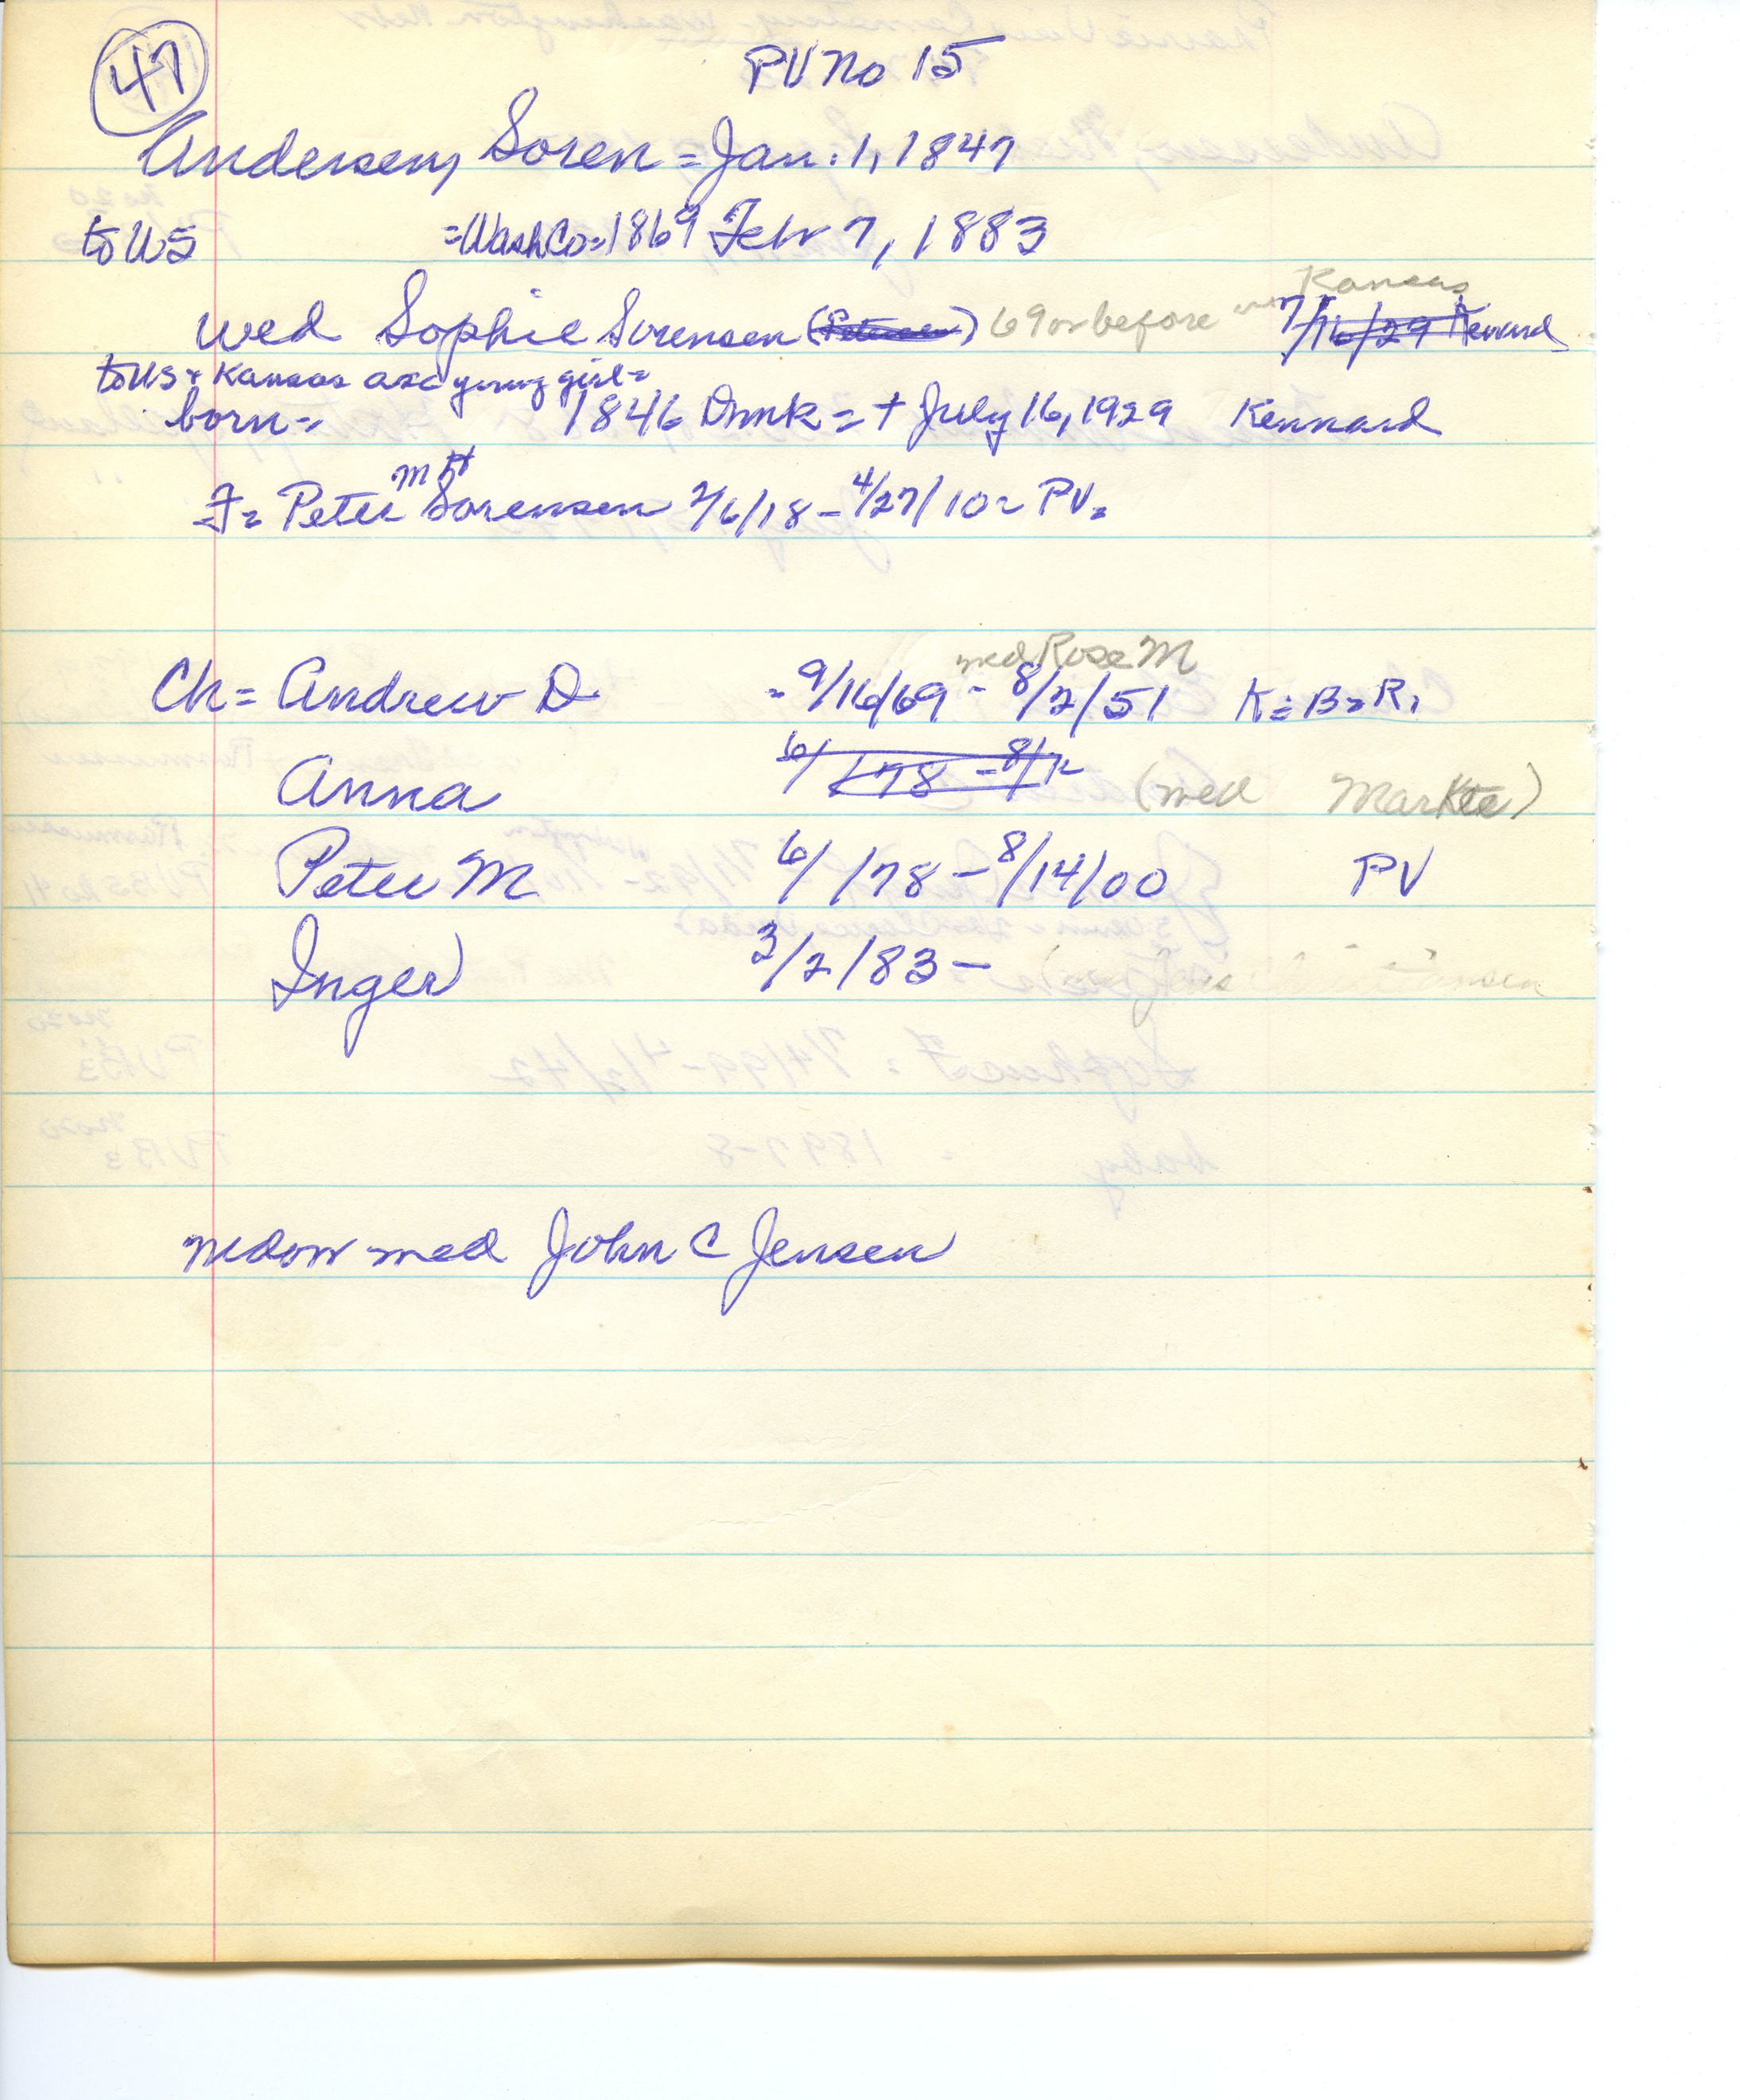 47
PV No 15
Andersen, Soren = Jan. 1, 1847
to US = Wash Co = 1869 Febr 7, 1883
Kansas
wed Sophie Sorensen ( ) 69 or before 7/16/29 Kennard
to US + Kansas as a young girl =
born = 1846 Dmk = + July 16, 1929 Kennard
F = Peter Sorensen 2/6/18 - 4/27/10 = PV =
wed Rose M
Ch = Andrew D = 9/16/69 - 8/2/51 K = B = R,
Anna 6/ /78 - 8/ (wed )
Peter M 6/ /78 - 8/14/00 PV
Inger 3/2/83 -
wed John C Jensen